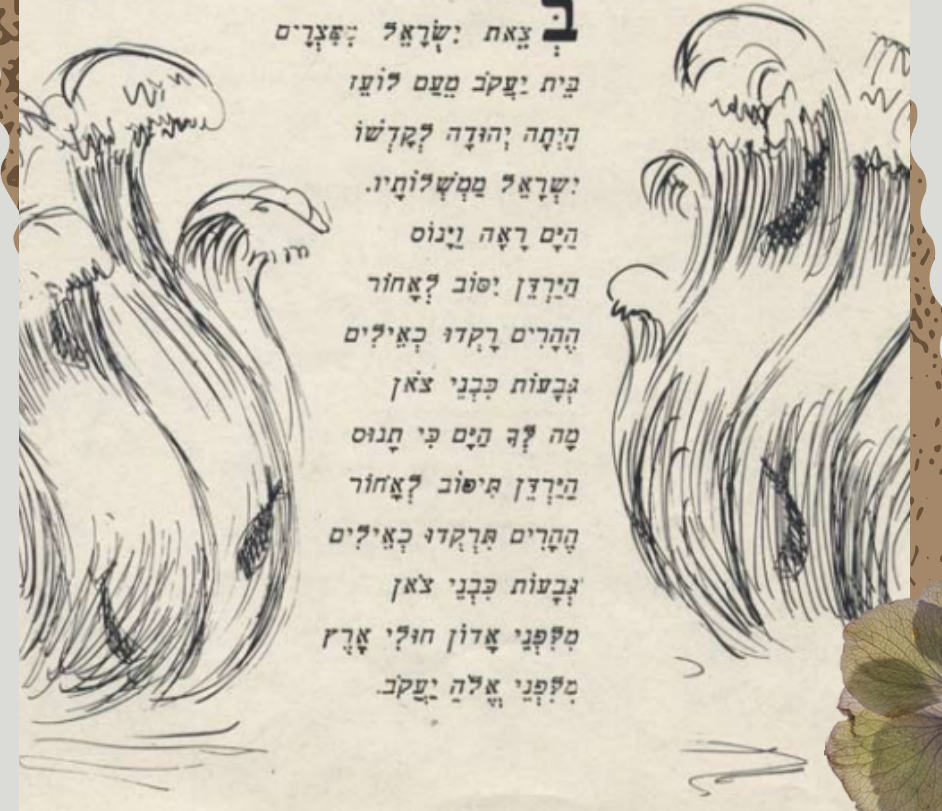 בְּצֵאת יִשְׂרָאֵל מִמִּצְרָיִם
בֵּית יַעֲקֹב מֵעַם לוֹעֵז
הָיְתָה יְהוּדָה לְקָדְשׁוֹ
יִשְׂרָאֵל מַמְשְׁלוֹתָיו.
הַיָּם רָאָה וַיָּנוֹס
הַיַּרְדֵּן יִסּוֹב לְאָחוֹר
הֶהָרִים רָקְדוּ כְאֵילִים
גְּבָעוֹת כִּבְנֵי צֹאן
מָה לְּךָ הַיָּם כִּי תָנוּס
הַיַּרְדֵּן תִּיסּוֹב לְאָחוֹר
הֶהָרִים תִּרְקְדוּ כְאֵילִים
גְּבָעוֹת כִּבְנֵי צֹאן
מִלִּפְנֵי אָדוֹן חוּלִי אָרֶץ
מִלִּפְנֵי אֱלֹהַּ יַעֲקֹב.